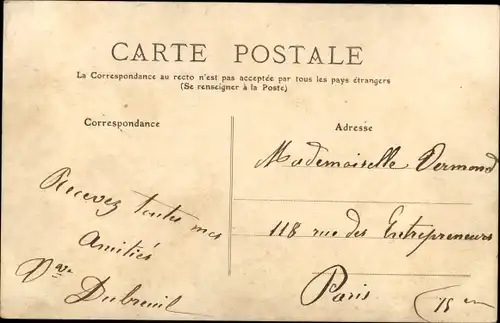 CARTE POSTALE
La Correspondance au recto n'est pas acceptée par tous les pays étrangers
(Se renseigner à la Poste)
Correspondance
Recevez toutes mes
Amitiés
Vve
Dubreuil
Adresse
Mademoiselle Dermond
118 rue des Entrepreneurs
Paris (15 em